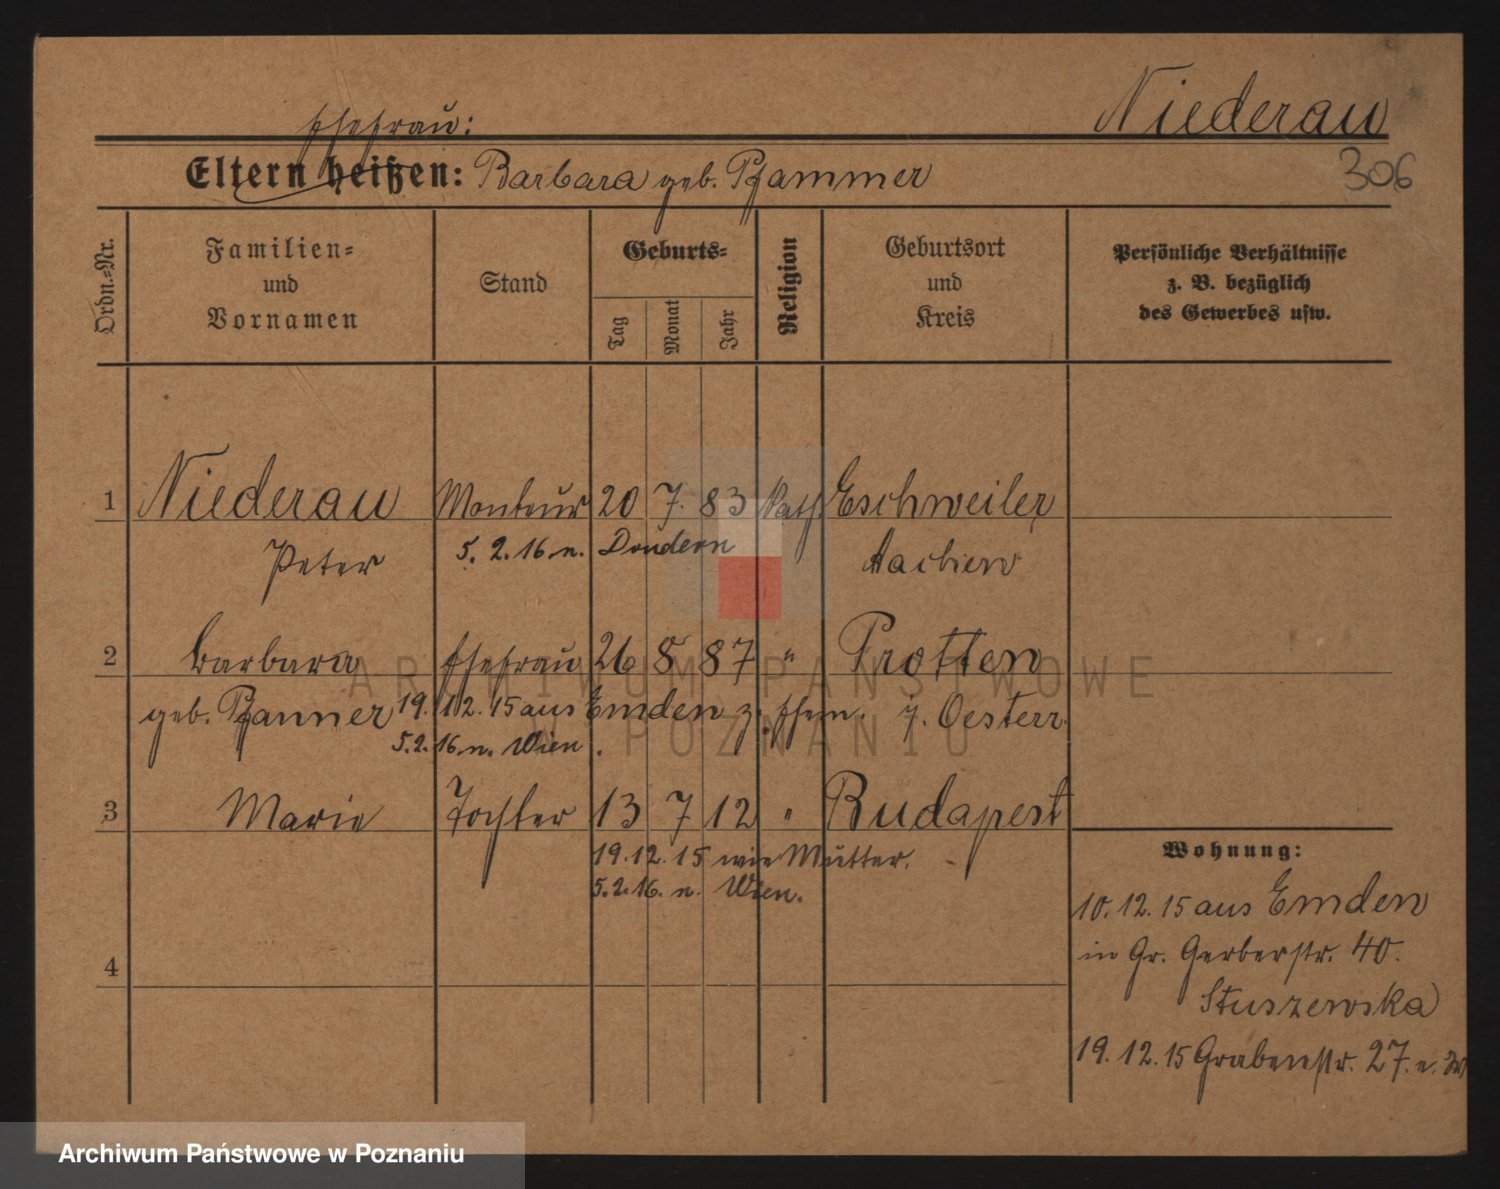 Niederau
Ehefrau:
Eltern heißen: Barbara geb. Pfammer
306
Ordn.-Nr.
Familien-
und
Vornamen
Stand
Geburts-
Tag
Monat
Jahr
Religion
Geburtsort
und
Kreis
Persönliche Verhältnisse
z. B. bezüglich
des Gewerbes usw.
1 Niederau Monteur 20 7. 83 Kath. Eschweiler
Peter 5. 2. 16 n. Aachen
2 Barbara Ehefrau 26 8 87 " Protten
geb. Pfanner 19. 12. 15 aus Emden z. Ehem. i. Oesterr.
5. 2. 16 n. Wien.
3 Marie Tochter 13 7 12 " Budapest
19. 12. 15 wie Mutter.
5. 2. 16. n. Wien.
4
Wohnung:
10. 12. 15 aus Emden
in Gr. Gerberstr. 40.
Stuszewska
19. 12. 15 Grabenstr. 27.
ARCHIWUM PAŃSTWOWE
W POZNANIU
Archiwum Państwowe w Poznaniu